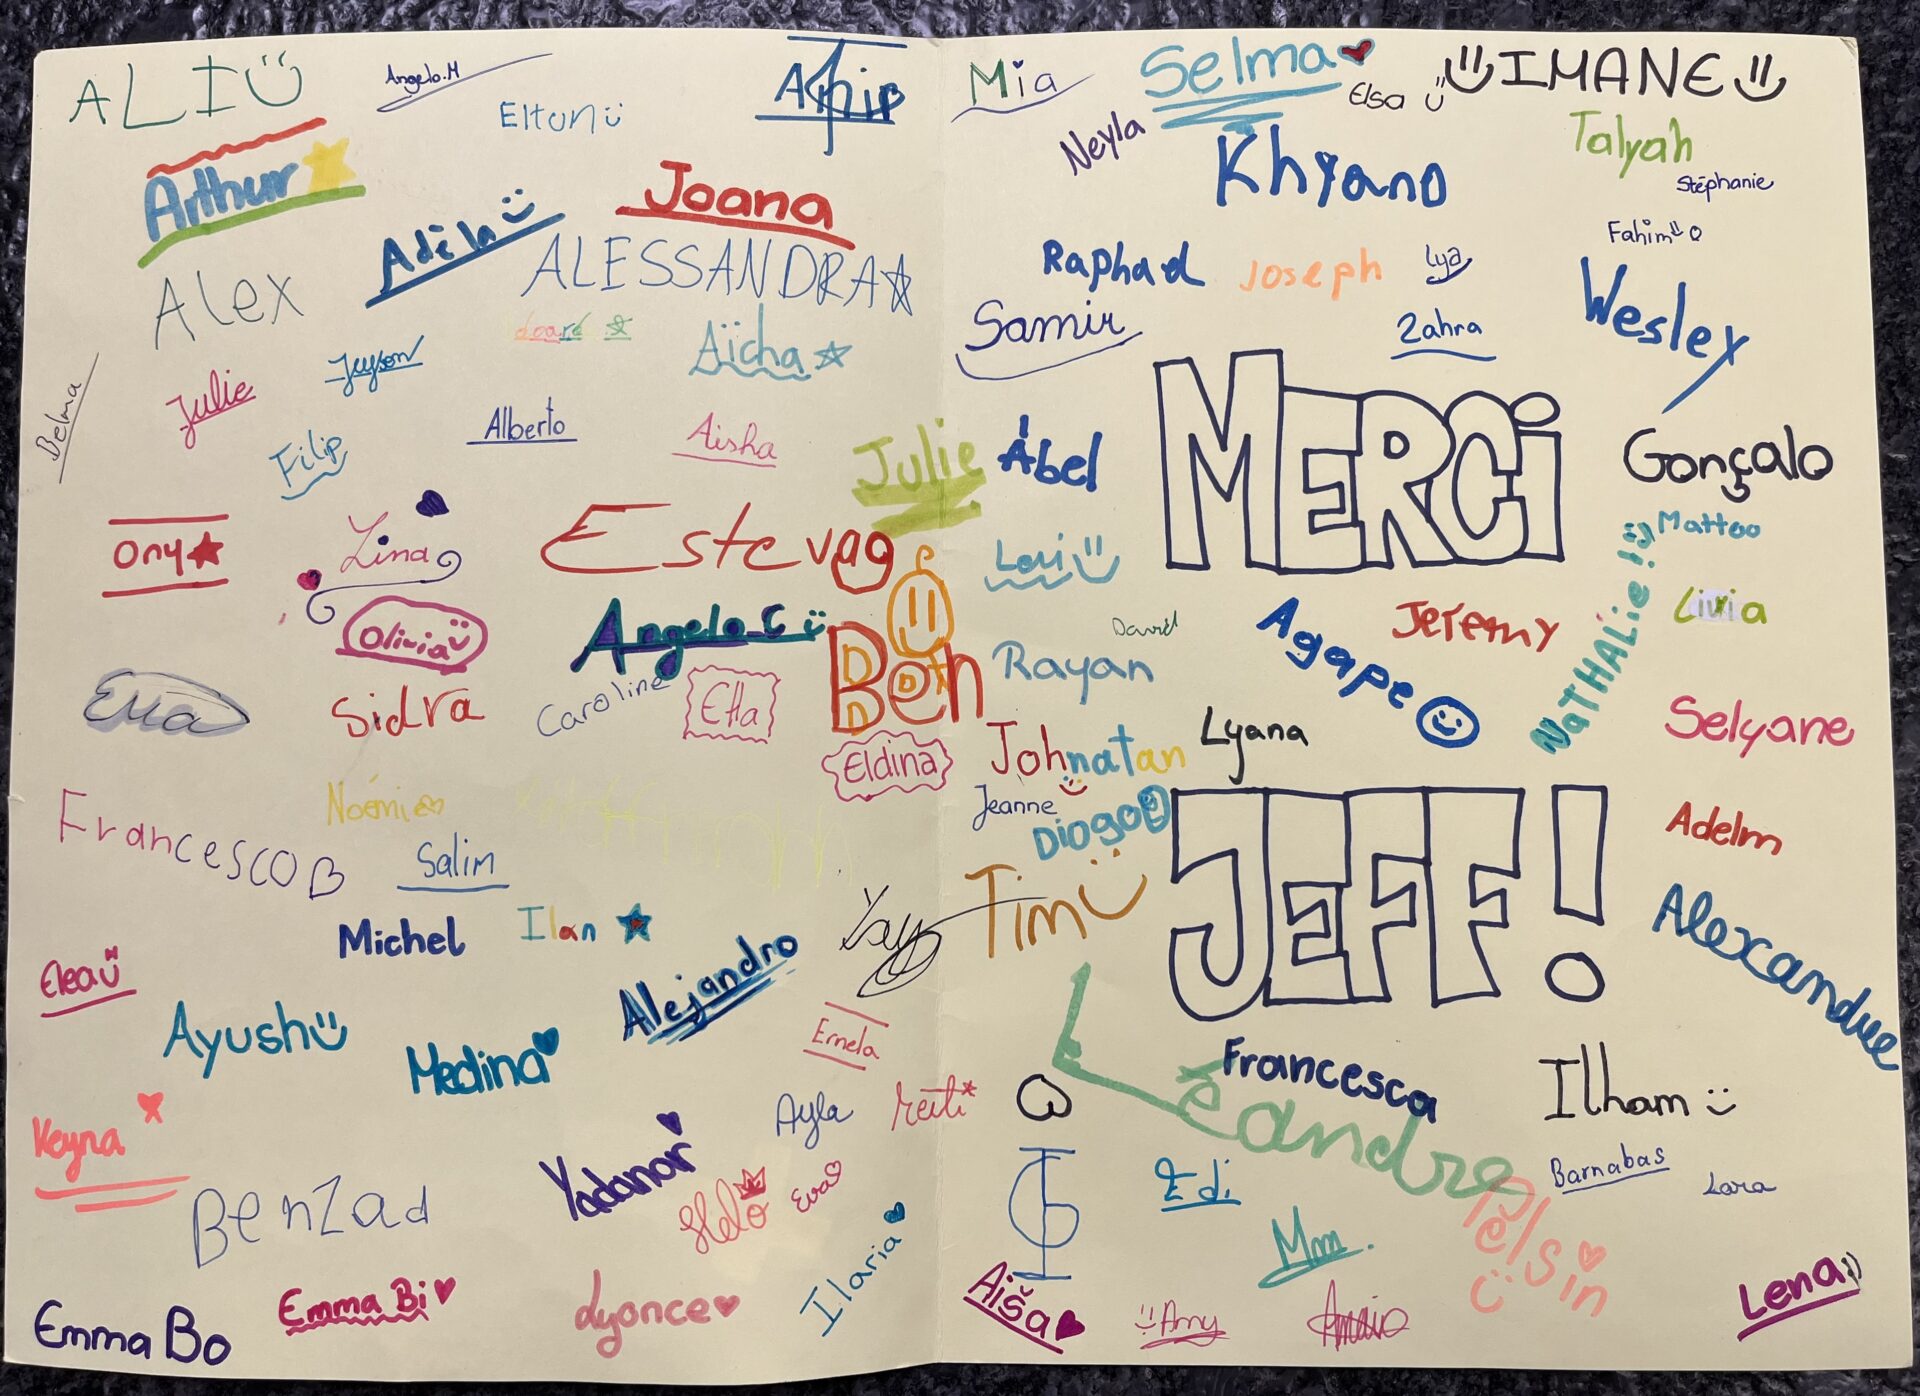 ALI
Angelo.M
Eltun
Arthur
Adéla
Joana
Alex
ALESSANDRA
Aïcha
Jeyson
Julie
Belma
Filip
Alberto
Aisha
Julie
Ony
Lina
Estevag
Olivia
Angelo.C
Ben
Sidra
Caroline
Ella
Eldina
Noémie
Francesco B
Salim
Michel
Ilan
Elea
Alejandro
Ayush
Medina
Ernela
Keyna
Ayla
Yadanar
Benzad
Helo
Eva
Ilaria
Emma Bo
Emma Bi
Lyonce
Mia
Selma
Elsa
IMANE
Neyla
Khyano
Talyah
Stéphanie
Fahim
Raphael
Joseph
Lya
Samir
Zahra
Wesley
MERCI
Ábel
Gonçalo
Mattoo
Lori
NATHALie!
Livia
David
Agape
Jeremy
Rayan
Lyana
Selyane
Johnatan
Jeanne
Diogo
JEFF!
Adelm
Tim
Alexandre
Léandre
Francesca
Ilham
Edi
Barnabas
Lara
Mm.
Pelsin
Aiša
Amy
Lena